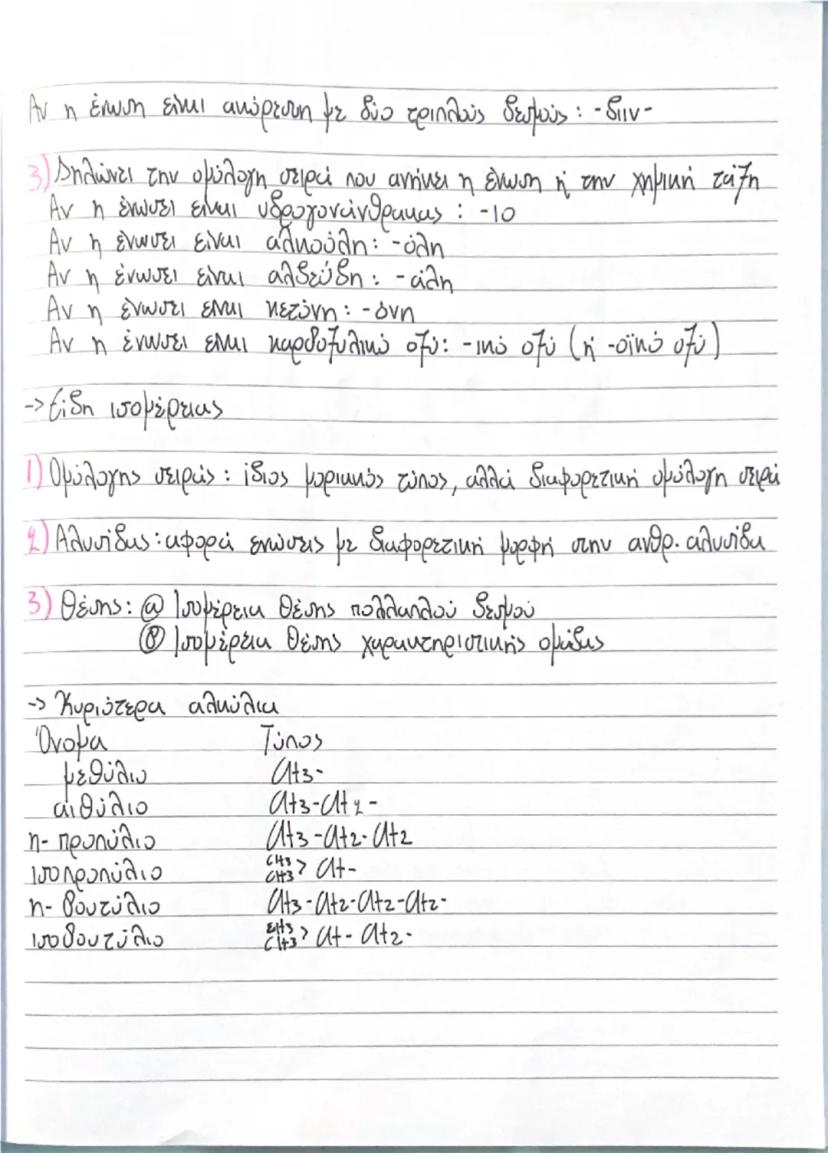 Αν η ένωση είναι ακόρεστη με δύο τριπλούς δεσμούς: -διιν-
3) Δηλώνει την ομόλογη σειρά που ανήκει η ένωση ή την χημική τάξη
Αν η ένωσει είναι υδρογονάνθρακας: -ιο
Αν η ένωσει είναι αλκοόλη: -όλη
Αν η ένωσει είναι αλδεΰδη: -άλη
Αν η ένωσει είναι κετόνη: -όνη
Αν η ένωσει είναι καρβοξυλικό οξύ: -ικό οξύ (ή -οϊκό οξύ)
-> Είδη ισομέρειας
1) Ομόλογης σειράς: ίδιος μοριακός τύπος, αλλά διαφορετική ομόλογη σειρά
2) Αλυσίδας: αφορά ενώσεις με διαφορετική μορφή στην ανθρ. αλυσίδα
3) Θέσης: α Ισομέρεια θέσης πολλαπλού δεσμού
β Ισομέρεια θέσης χαρακτηριστικής ομάδας
-> Κυριότερα αλκύλια
Όνομα Τύπος
μεθύλιο CH3-
αιθύλιο CH3-CH2-
n-προπύλιο CH3-CH2-CH2
ισοπροπύλιο CH3 CH3 > CH-
n-βουτύλιο CH3-CH2-CH2-CH2-
ισοβουτύλιο CH3 CH3 > CH-CH2-